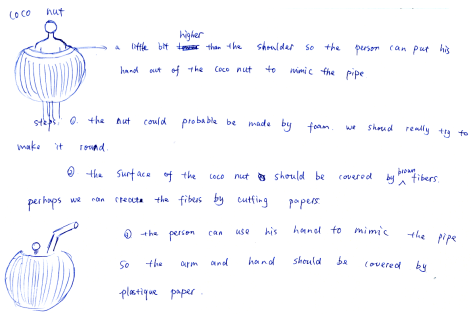 coco nut
a little bit higher than the shoulder so the person can put his
hand out of the coco nut to mimic the pipe
steps: ① the nut could probable be made by foam. we shoud really try to
make it round.
② the surface of the coco nut should be covered by brown fibers.
perhaps we can create the fibers by cutting papers.
③ the person can use his hand to mimic the pipe
so the arm and hand should be covered by
plastique paper.